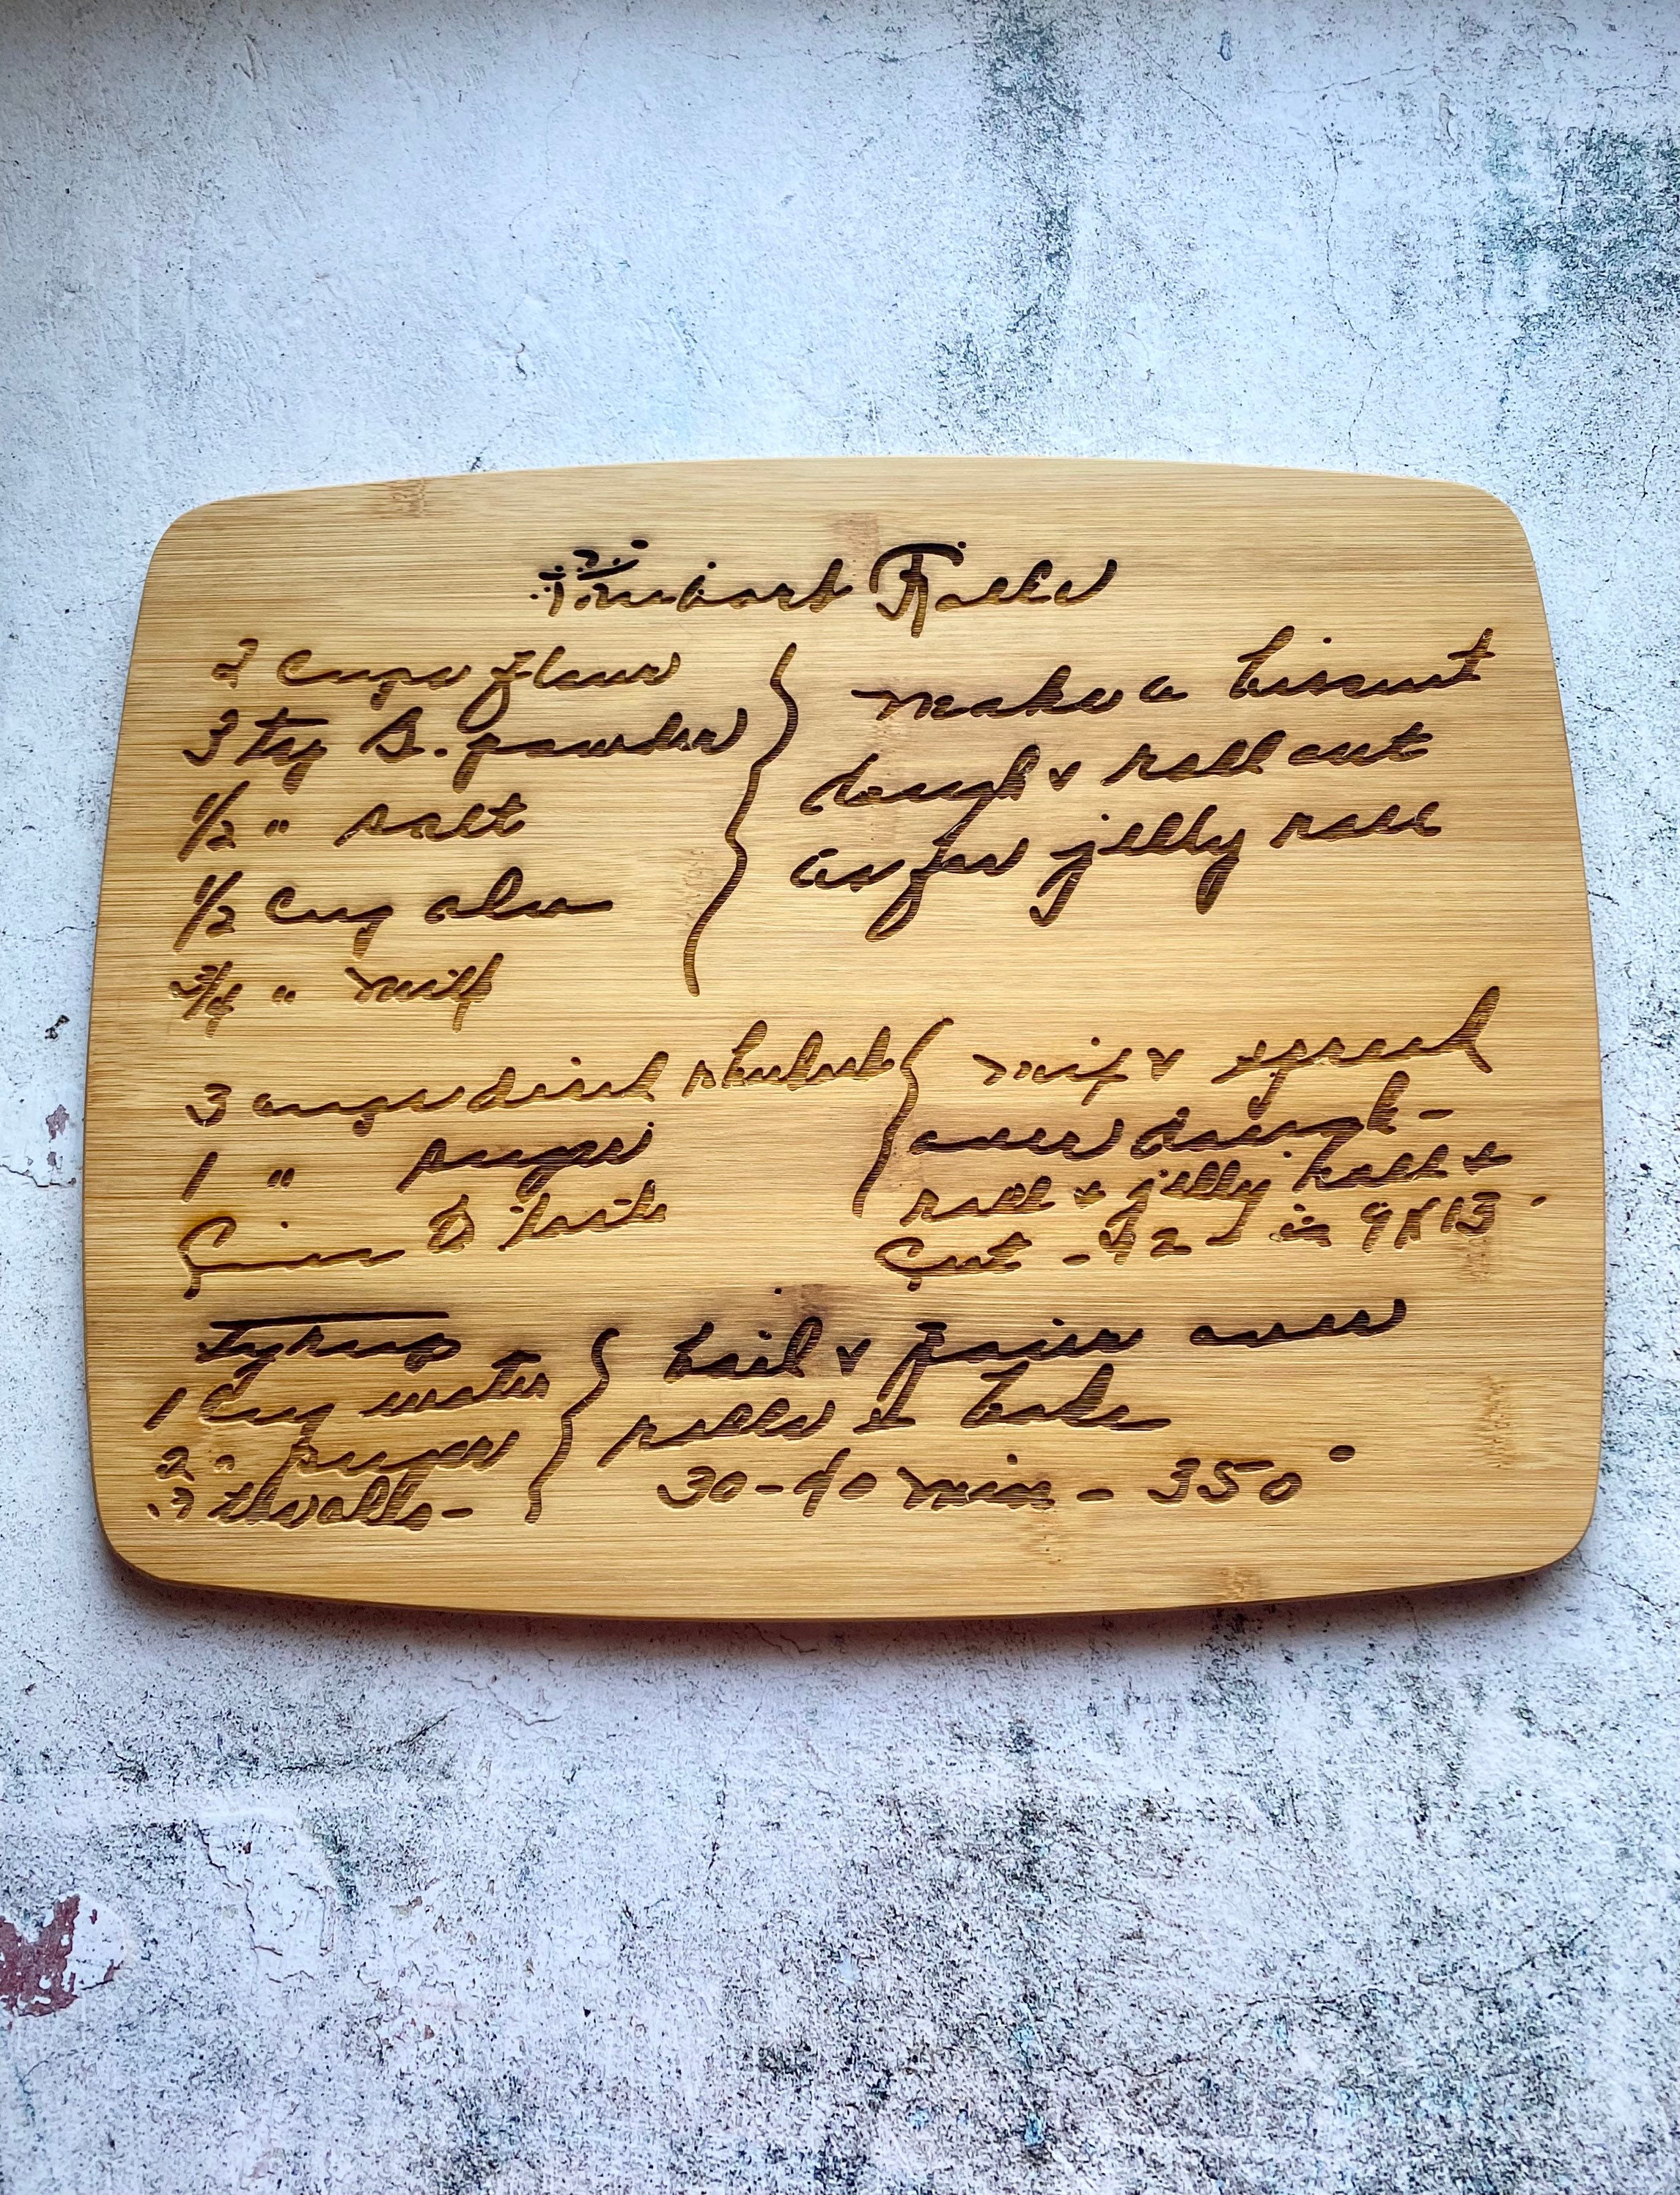 Rhubarb Rolls
2 Cups flour
3 tsp B. powder
1/2 " salt
1/2 Cup oleo
3/4 " milk
make a biscuit
dough & roll out
as for jelly roll
3 cups diced rhubarb
1 " sugar
to taste
mix & spread
over dough -
roll & jelly roll &
Cut - in 9x13
Syrup
1 Cup water
2 " sugar
boil & pour over
rolls & bake
30-40 min - 350°